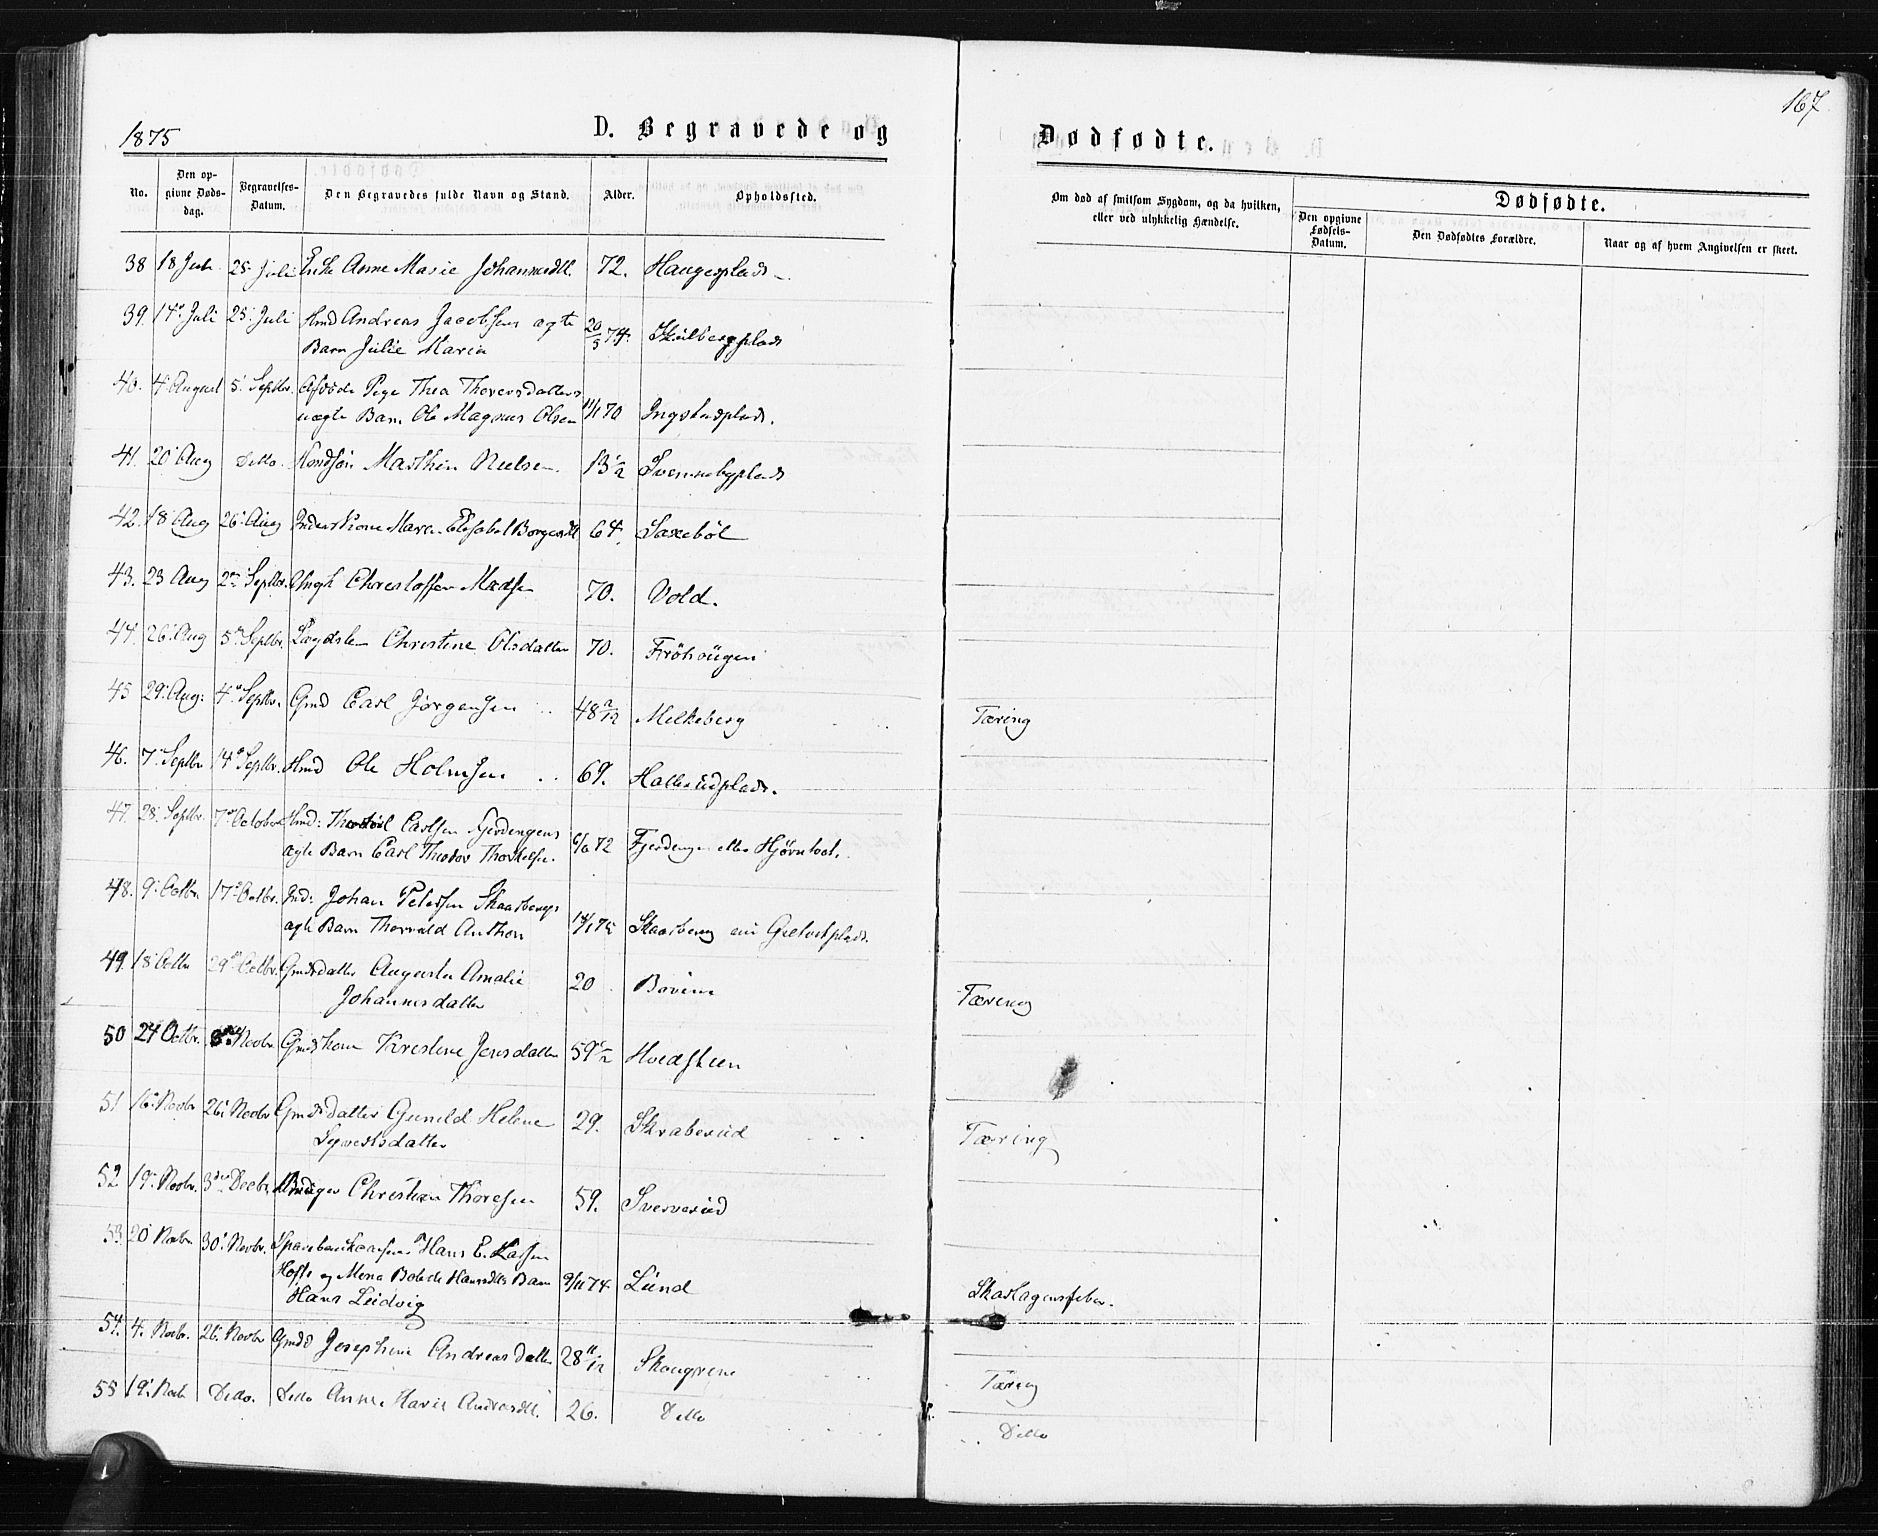 167
1875
D. Begravede og Dødfødte.
No.
Den opgivne Dødsdag.
Begravelses-Datum.
Den Begravedes fulde Navn og Stand.
Alder.
Opholdssted.
Om død af smitsom Sygdom, og da hvilken, eller ved ulykkelig Hændelse.
Dødfødte.
Den opgivne Fødsels-Datum.
Den Dødfødtes Forældre.
Naar og af hvem Angivelsen er skeet.
38 18 Juli 25 Juli Enke Anne Marie Johannesdtt. 72. Haugesplads
39. 14 Juli 25 Juli Hmd Andreas Jacobsens ægte 20/5 74.
Barn Julie Maria
40. 4 August 5 Septbr. Pige Thea Thorersdatters
uægte Barn Ole Magnus Olsen 11/1 70 Ingstadplads.
41. 20 Aug Ditto. Marthin Nielsen 13 1/2 Svennebyplads
42. 18 Aug 26 Aug Kone Maren Elisabet Borgersdtt 64. Saxebøl
43. 23 Aug 2 Septbr. Christoffer Madsen 70. Vold.
44. 26 Aug 5 Septbr. Lægdslem Christine Olsdatter 70. Fröhaugen
45 29 Aug: 4 Septbr. Gmd Carl Jørgensen 48 2/12 Melkeberg Tæring
46. 7 Septbr 14 Septbr. Hmd Ole Holmsen 69. Hallesudplads.
47. 28 Septbr. 7 October Hmd: Carlsen Gjerdengens
ægte Barn Carl Theodor Thorkelsen. 6/6 72 Fjerdengen eller Hjørntvet.
48. 9 Octbr. 17 Octbr. Ind: Johan Petersen Skaarbergs
ægte Barn Thorvald Anthon 14/1 75 Skaarberg
49. 18 Octbr 29 Octbr. Gmdsdatter Augusta Amalie 20 Tæring
Johannesdatter
50 24 Octbr. Novbr. Gmdskone Kristine Jensdatter 59 1/2 Hvidsteen
51 16 Novbr 26 Novbr Gmdsdatter Gunild Helene 29. Skraberud Tæring
Syvertsdatter
52 19 Novbr. 3 Decbr. Christian Thoresen 59. Sververud
53. 20 Novbr. 30 Novbr. Hans E. Larsen
Hofs og Mina Bolede Hansdtts Barn 9/11 74. Lund Skarlagensfeber.
Hans Ludvig
54. 4. Novbr. 26 Novbr Gmdd Josephine Andreasdatter 28 11/12 Skaugrene Tæring
55 19 Novb Ditto. Ditto Anne Marie Andreasdtt. 26. Ditto Ditto